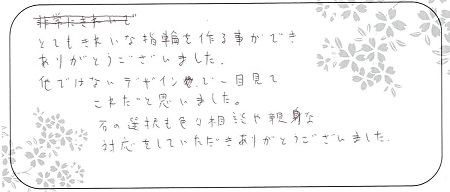 非常にきれいで
とてもきれいな指輪を作る事ができ
ありがとうございました。
他ではないデザインで一目見て
これだと思いました。
石の選択も色々相談や親身な
対応をしていただきありがとうございました。